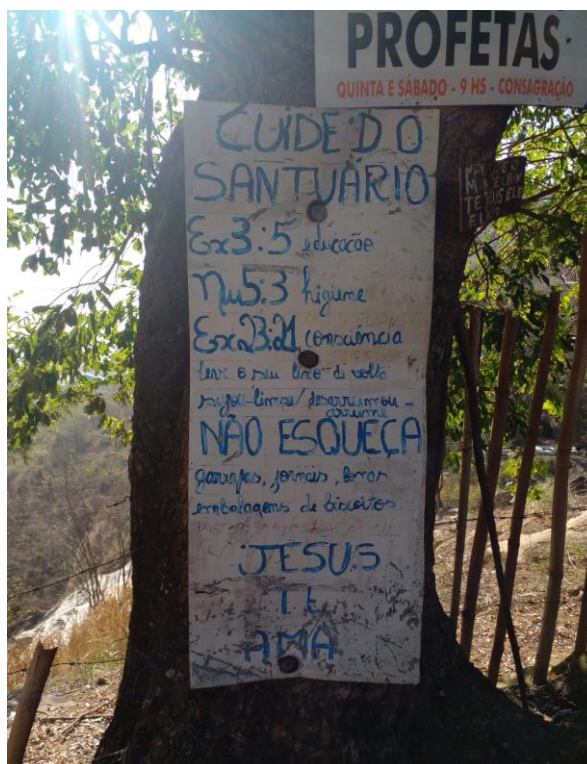 PROFETAS
QUINTA E SÁBADO - 9 HS - CONSAGRAÇÃO
CUIDE DO
SANTUÁRIO
Ex3:5 educação
Nu5:3 higiene
Ex23:21 consciência
leve o seu lixo de volta
sujou-limpe/desarrumou-
arrume
NÃO ESQUEÇA
garrafas, jornais, lonas
embalagens de biscoitos
JESUS
TE
AMA